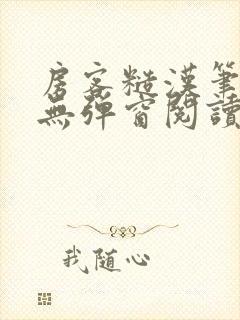 房客糙漢筆
無彈窗閱讀
我随心